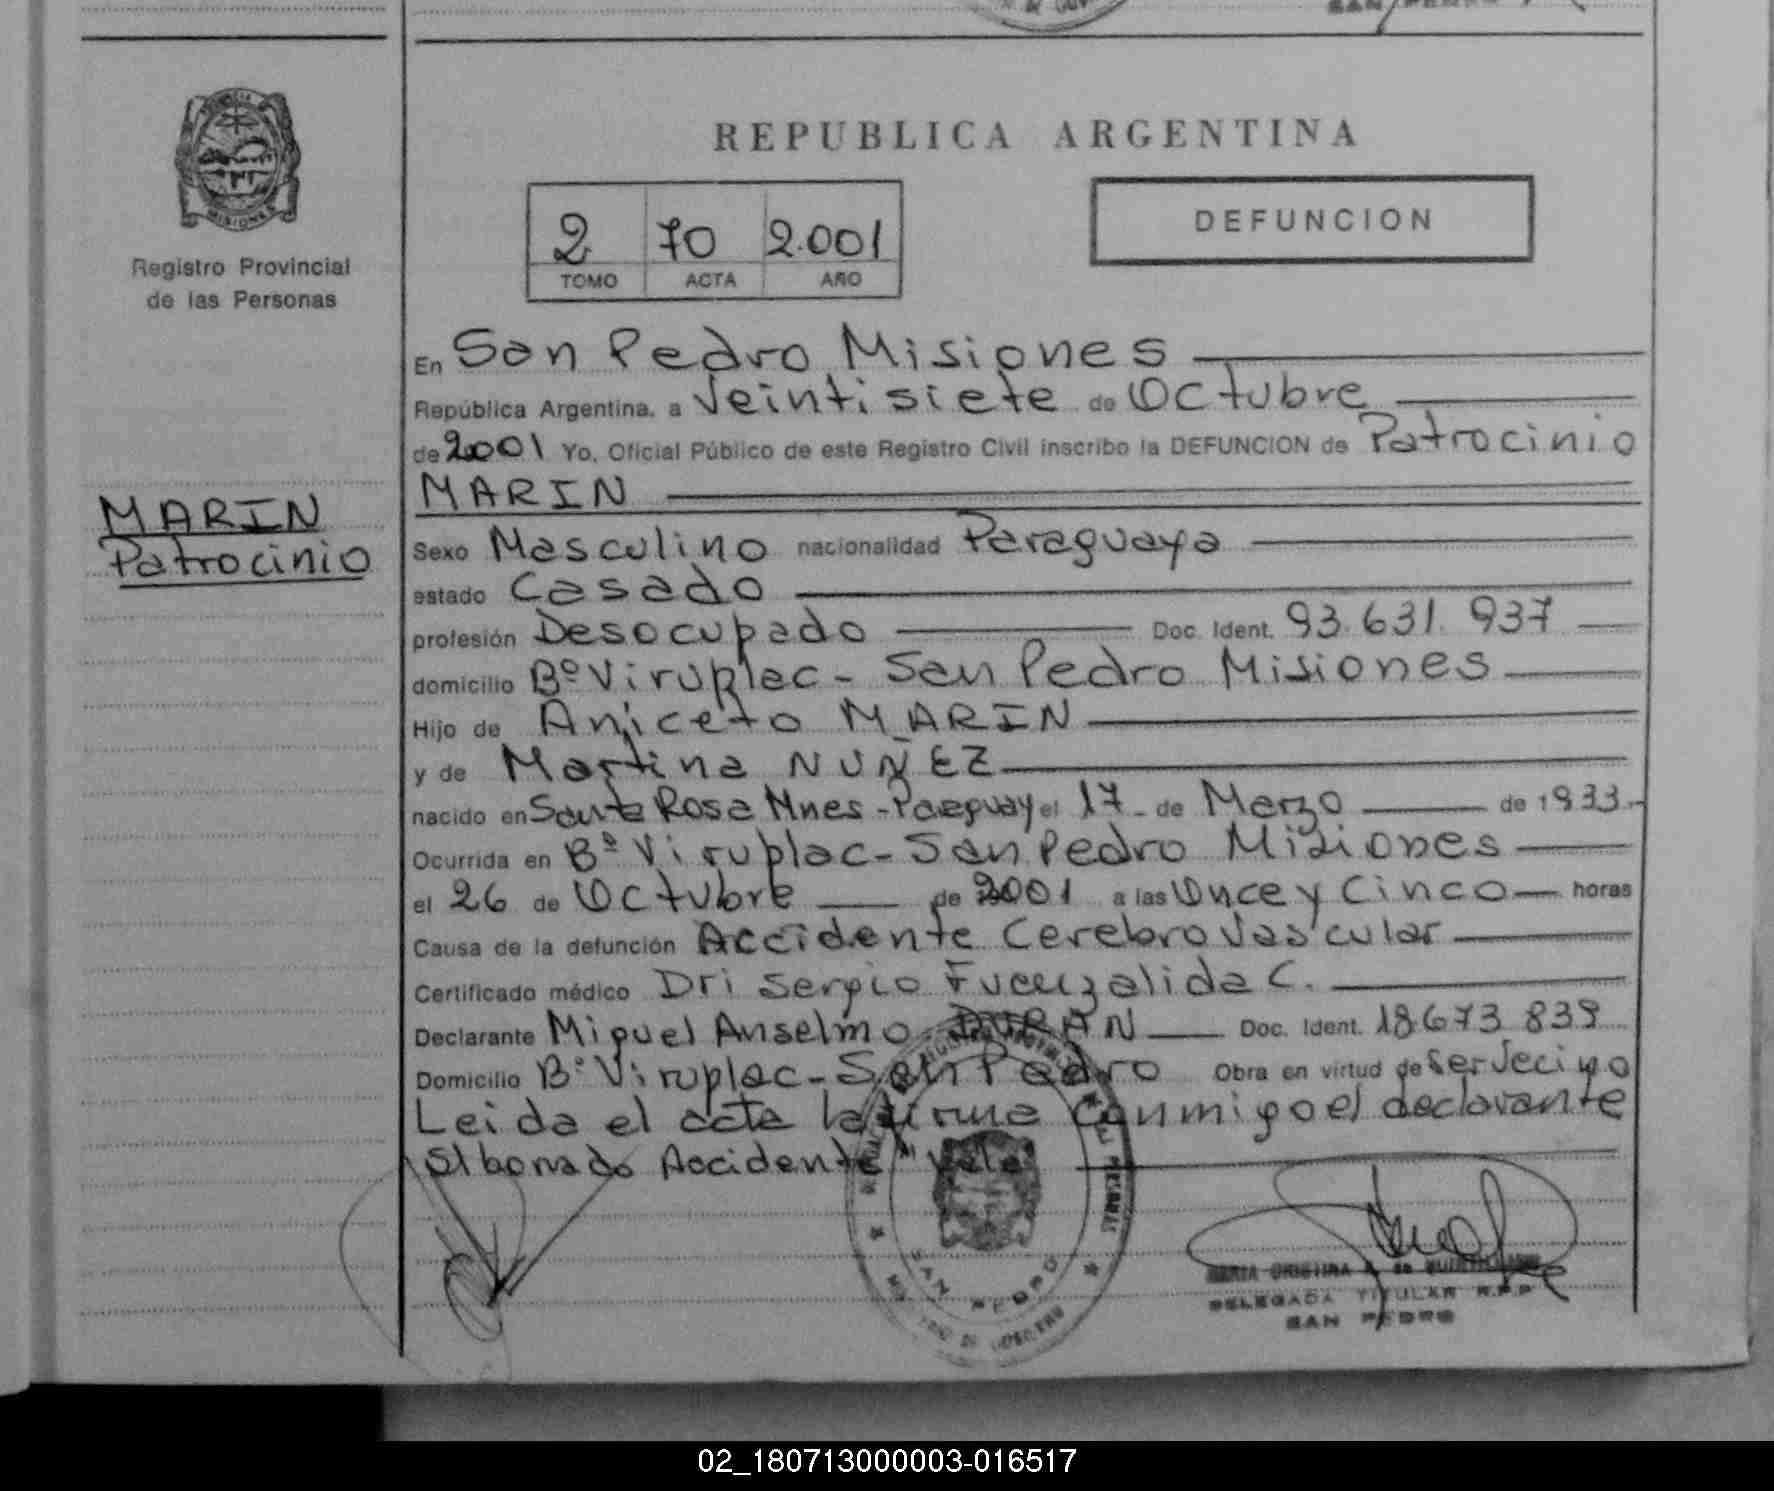 REPUBLICA ARGENTINA
MISIONES
Registro Provincial
de las Personas
2 70 2.001
TOMO ACTA AÑO
DEFUNCION
En San Pedro Misiones
República Argentina, a Veintisiete de Octubre
de 2001 Yo, Oficial Público de este Registro Civil inscribo la DEFUNCION de Patrocinio
MARIN
MARIN
Patrocinio
Sexo Masculino nacionalidad Paraguaya
estado Casado
profesión Desocupado Doc. Ident. 93.631.937
domicilio Bº Viruplac - San Pedro Misiones
Hijo de Aniceto MARIN
y de Martina NUÑEZ
nacido en Santa Rosa Mnes - Paraguay el 17 - de Marzo de 1933.-
Ocurrida en Bº Viruplac - San Pedro Misiones
el 26 de Octubre de 2001 a las Once y Cinco horas
Causa de la defunción Accidente Cerebro Vascular
Certificado médico Dr: Sergio Fuenzalida C.
Declarante Miguel Anselmo DURAN Doc. Ident. 18.673.839
Domicilio Bº Viruplac - San Pedro Obra en virtud de ser Vecino
Leida el acta la firma conmigo el declarante
Accidente
SAN PEDRO
DELEGADA TITULAR R.P.P
SAN PEDRO
02_180713000003-016517